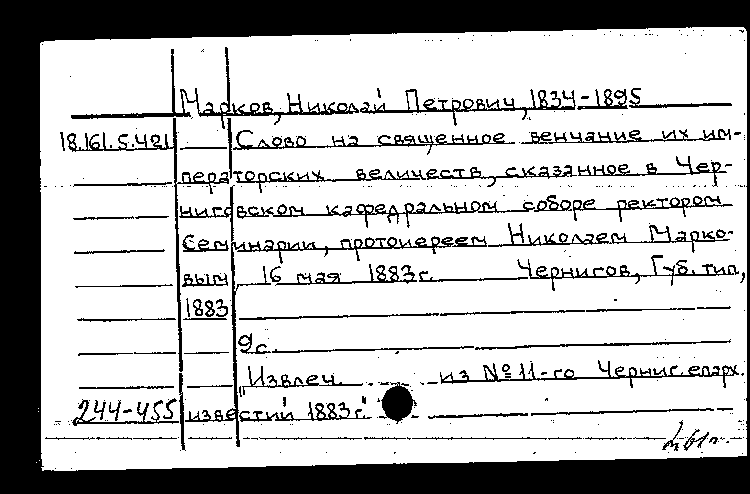 Марков, Николай Петрович, 1834-1895
18.161.5.421 Слово на священное венчание их им-
ператорских величеств, сказанное в Чер-
ниговском кафедральном соборе ректором
Семинарии, протоиереем Николаем Марко-
вым 16 мая 1883г. Чернигов, Губ. тип,
1883
9с.
"Извлеч. из №11-го Черниг. епарх.
244-455 известий 1883г."